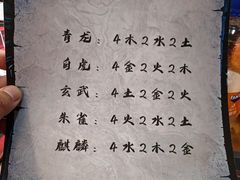 青龙：4木2水2土
白虎：4金2火2木
玄武：4土2金2火
朱雀：4火2水2土
麒麟：4水2木2金